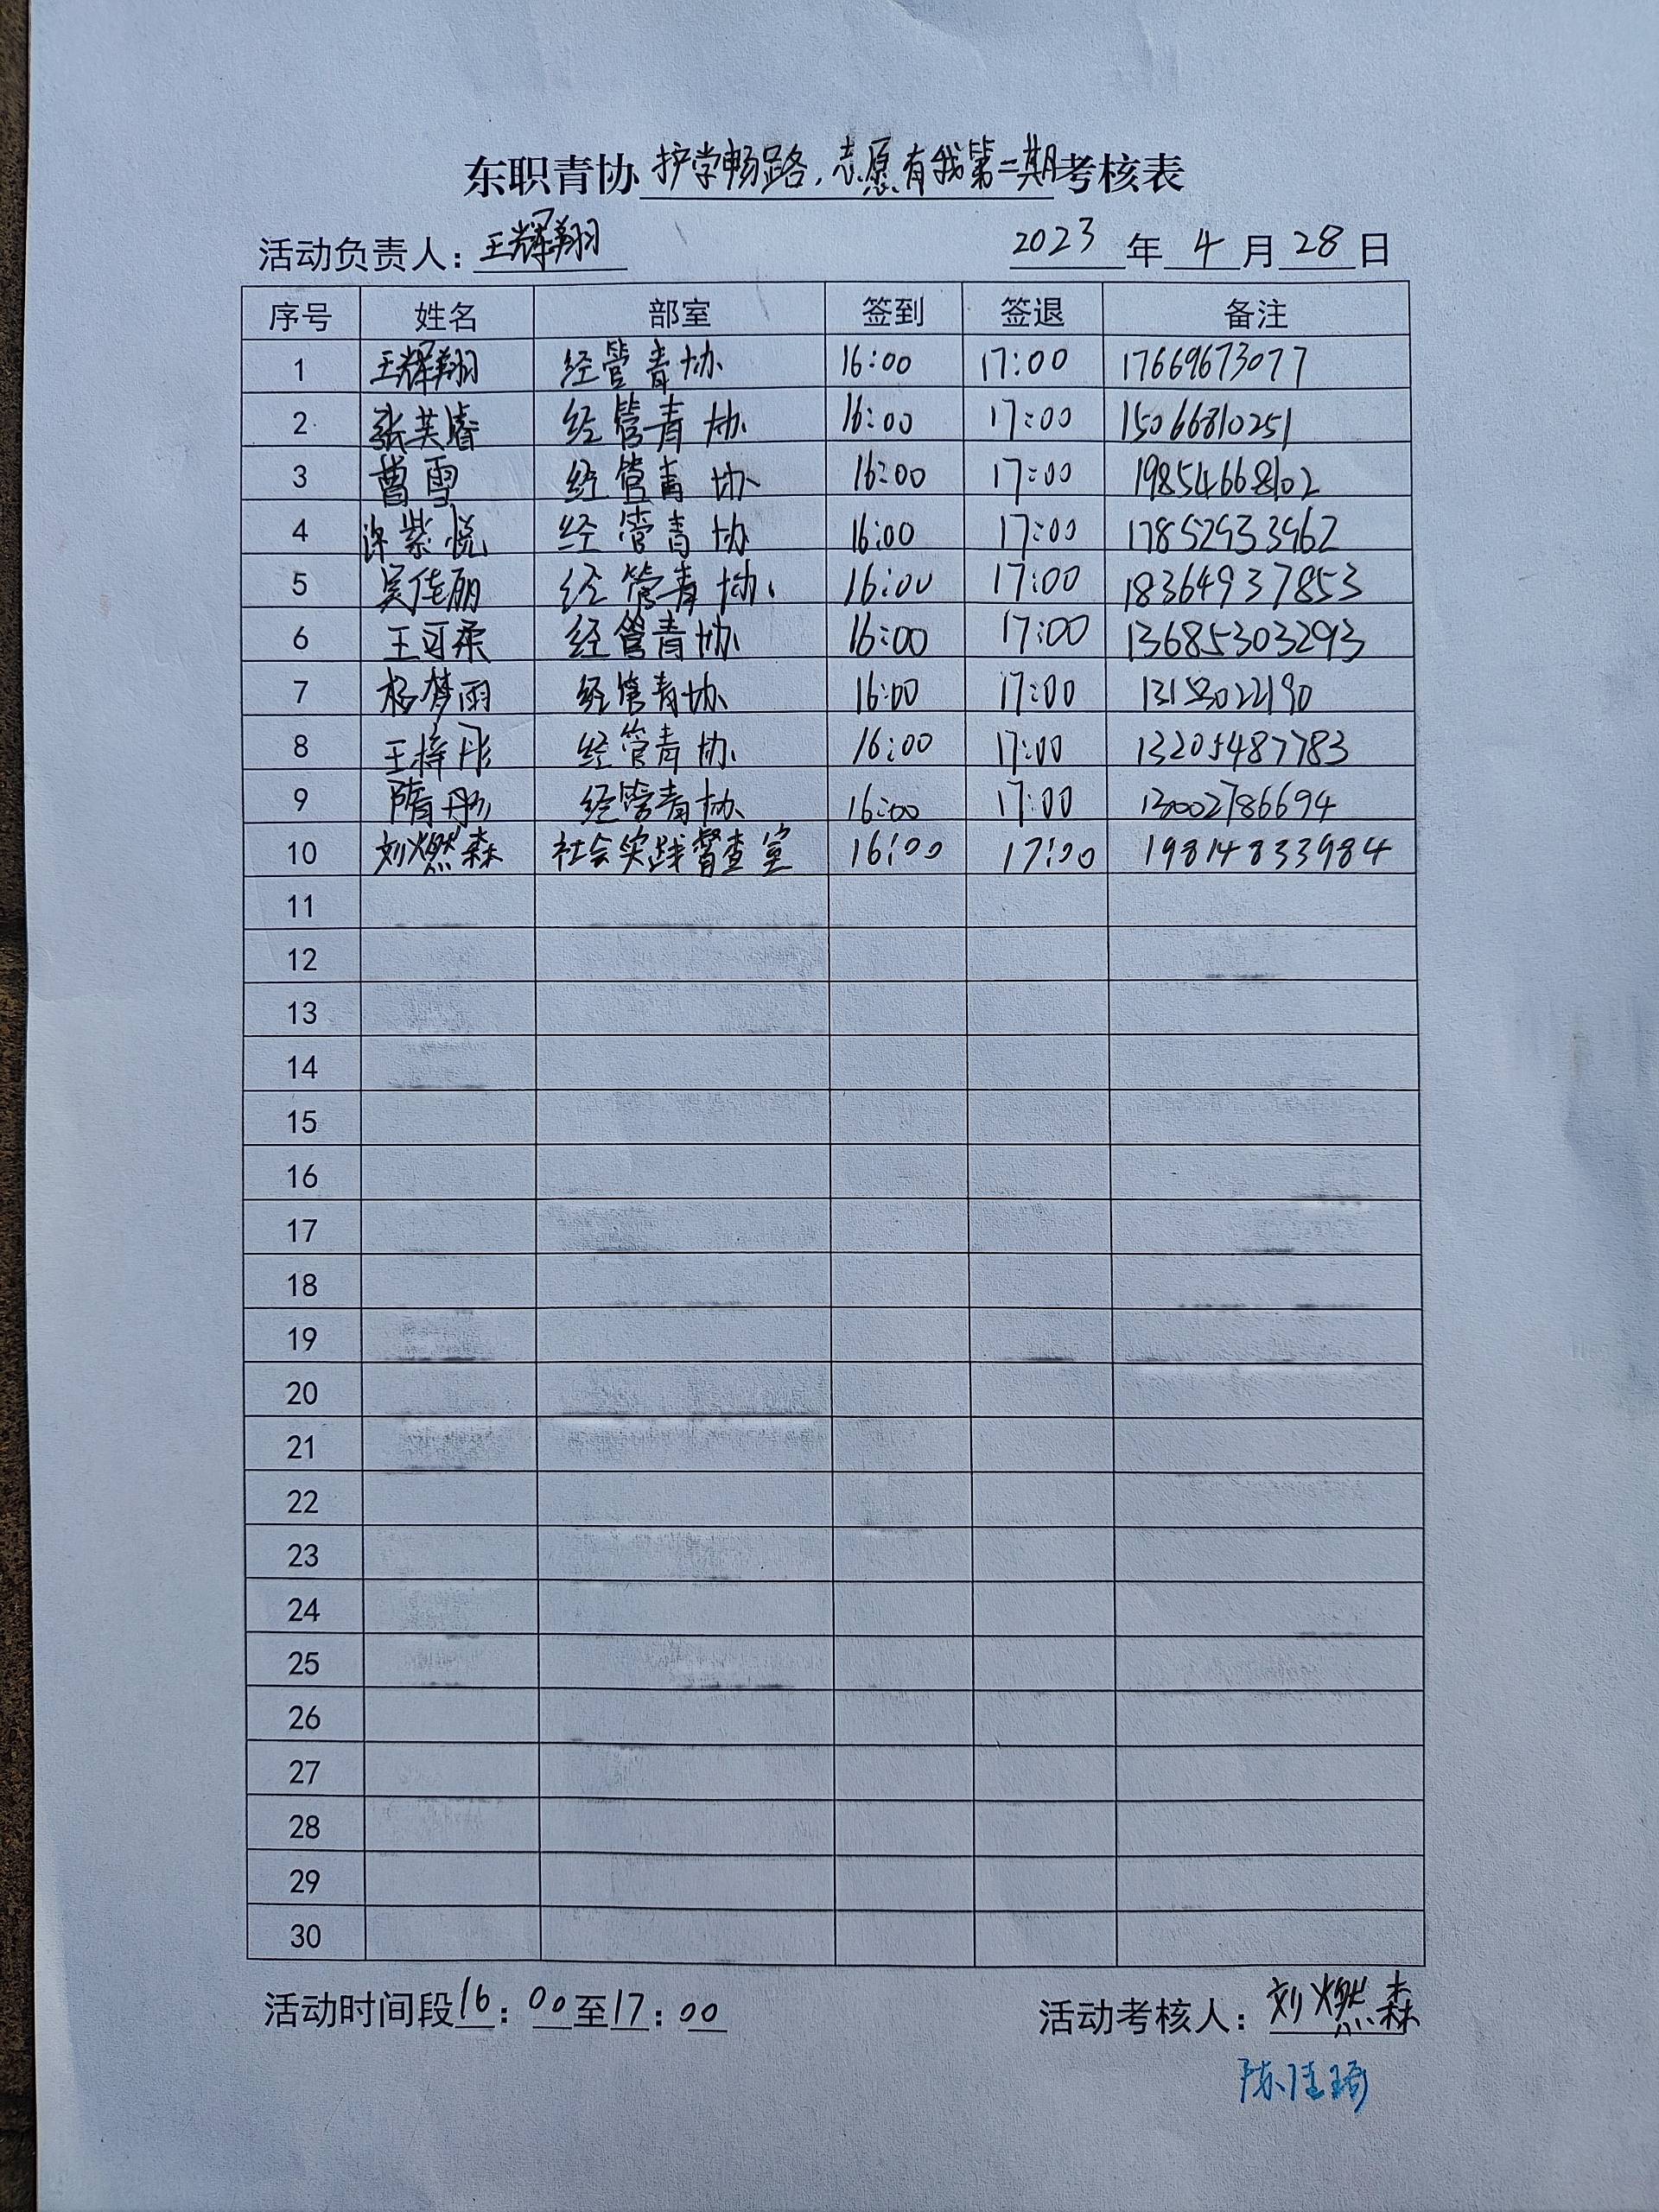 东职青协护学畅路，志愿有我第二期考核表
活动负责人：王辉翔 2023年4月28日
序号 姓名 部室 签到 签退 备注
1 王辉翔 经管青协 16:00 17:00 17669673077
2 张芙睿 经管青协 16:00 17:00 15066810251
3 曹雪 经管青协 16:00 17:00 19854668102
4 许紫悦 经管青协 16:00 17:00 17852933962
5 吴佳丽 经管青协 16:00 17:00 18364937853
6 王可柔 经管青协 16:00 17:00 13685303293
7 杨梦雨 经管青协 16:00 17:00
8 王梓彤 经管青协 16:00 17:00 13205487783
9 隋彤 经管青协 16:00 17:00 13002786694
10 刘燃森 社会实践督查室 16:00 17:00 19814833984
11
12
13
14
15
16
17
18
19
20
21
22
23
24
25
26
27
28
29
30
活动时间段16：00至17：00 活动考核人：刘燃森
陈佳琦